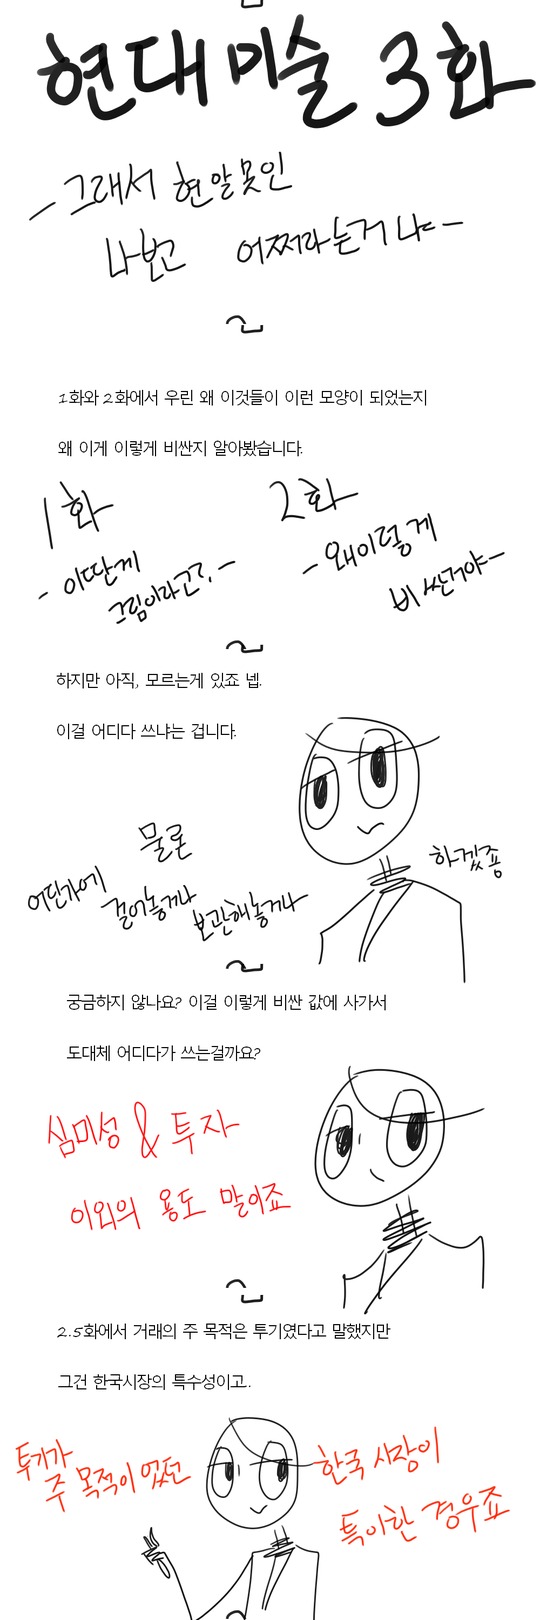 현대미술 3화
- 그래서 현알못인
나보고 어쩌라는거냐 -
1화와 2화에서 우린 왜 이것들이 이런 모양이 되었는지
왜 이게 이렇게 비싼지 알아봤습니다.
1화
- 이딴게
그림이라고?. -
2화
- 왜이렇게
비싼거야 -
하지만 아직, 모르는게 있죠 넵.
이걸 어디다 쓰냐는 겁니다.
물론
어딘가에
걸어놓거나
보관해놓거나
하겠죵
궁금하지 않나요? 이걸 이렇게 비싼 값에 사가서
도대체 어디다가 쓰는걸까요?
심미성 & 투자
이외의 용도 말이죠
2.5화에서 거래의 주 목적은 투기였다고 말했지만
그건 한국시장의 특수성이고..
투기가
주 목적이 었던
한국 시장이
특이한 경우죠